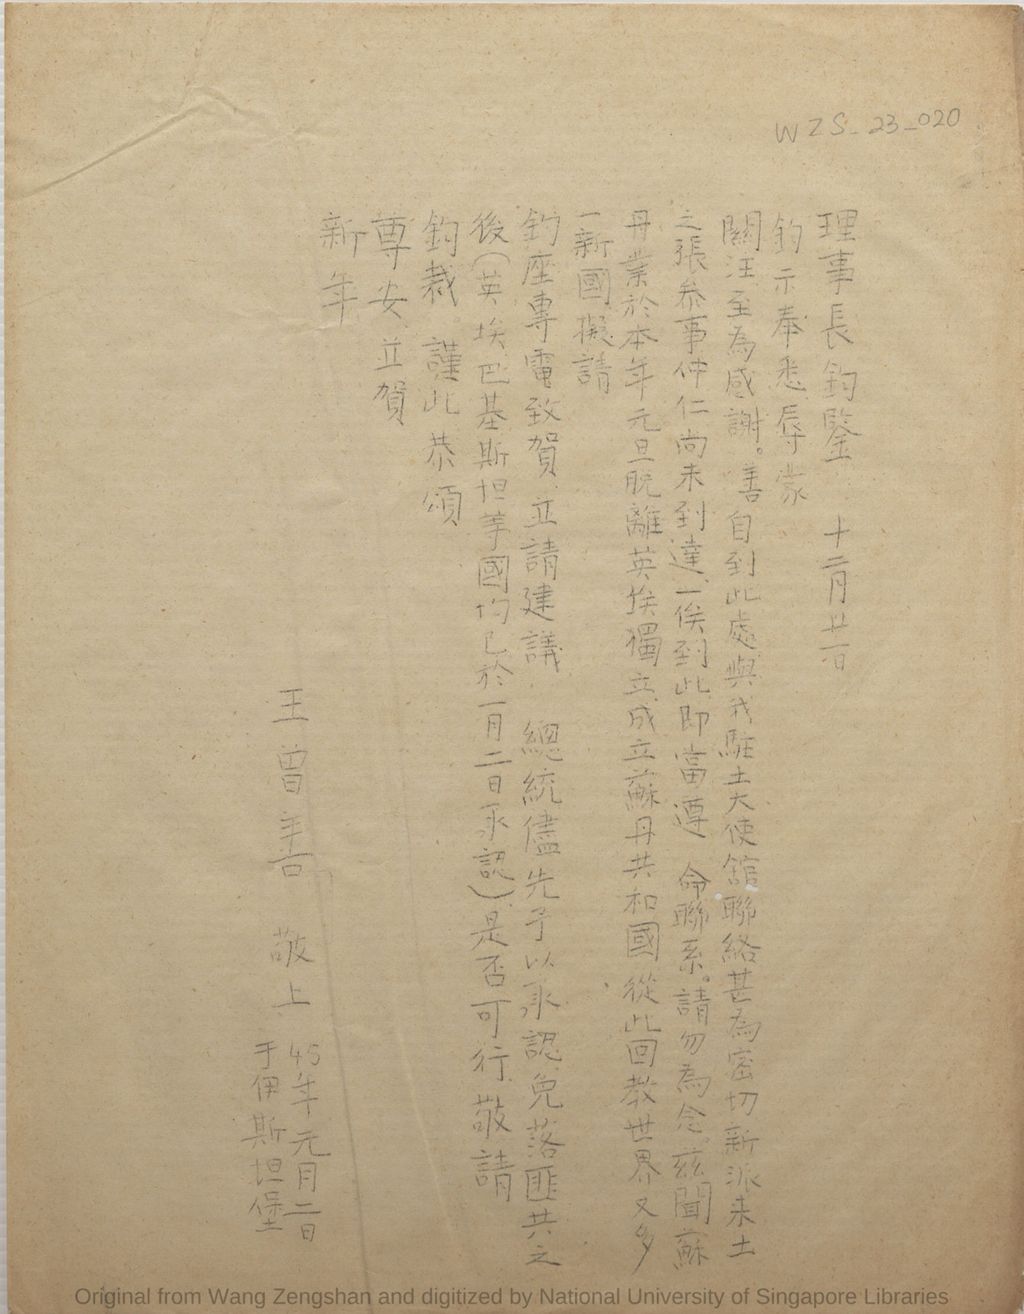 WZS_23_020
理事長鈞鑒 十二月廿一日
鈞示奉悉辱蒙
關注至為感謝。善自到此處與我駐土大使舘聯絡甚為密切新派来土
之張叅事仲仁尚未到達、一俟到此即當遵 命聯系。請勿為念。茲聞蘇
丹業於本年元旦脫離英埃獨立、成立蘇丹共和國從此回教世界又多
一新國、擬請
鈞座專電致賀、並請建議 總統儘先予以承認、免落匪共之
後（英、埃、巴基斯坦等國均已於一月二日承認）是否可行、敬請
鈞裁。謹此 恭頌
尊安、並賀
新年
王曾善 敬上
45年元月二日
于伊斯坦堡
Original from Wang Zengshan and digitized by National University of Singapore Libraries